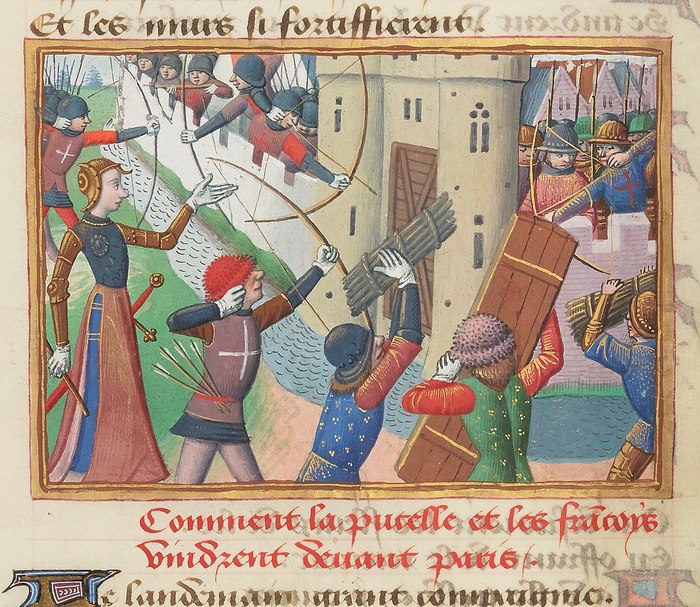 Et les murs si fortiffierent.
Comment la pucelle et les francoys
vindrent devant paris :.
Le landemain grant compaignie.